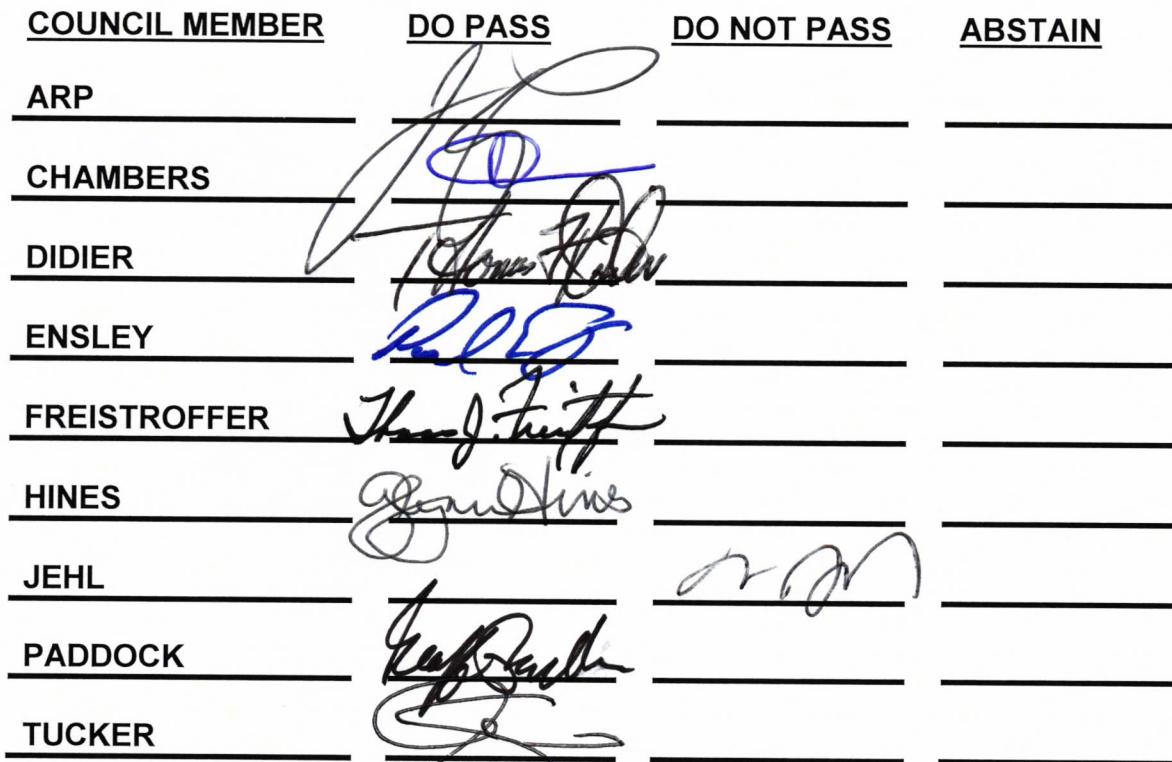 COUNCIL MEMBER DO PASS DO NOT PASS ABSTAIN
ARP
CHAMBERS
DIDIER Thomas Didier
ENSLEY Paul
FREISTROFFER Thomas J. Freistroffer
HINES Glynn Hines
JEHL
PADDOCK Geoff Paddock
TUCKER